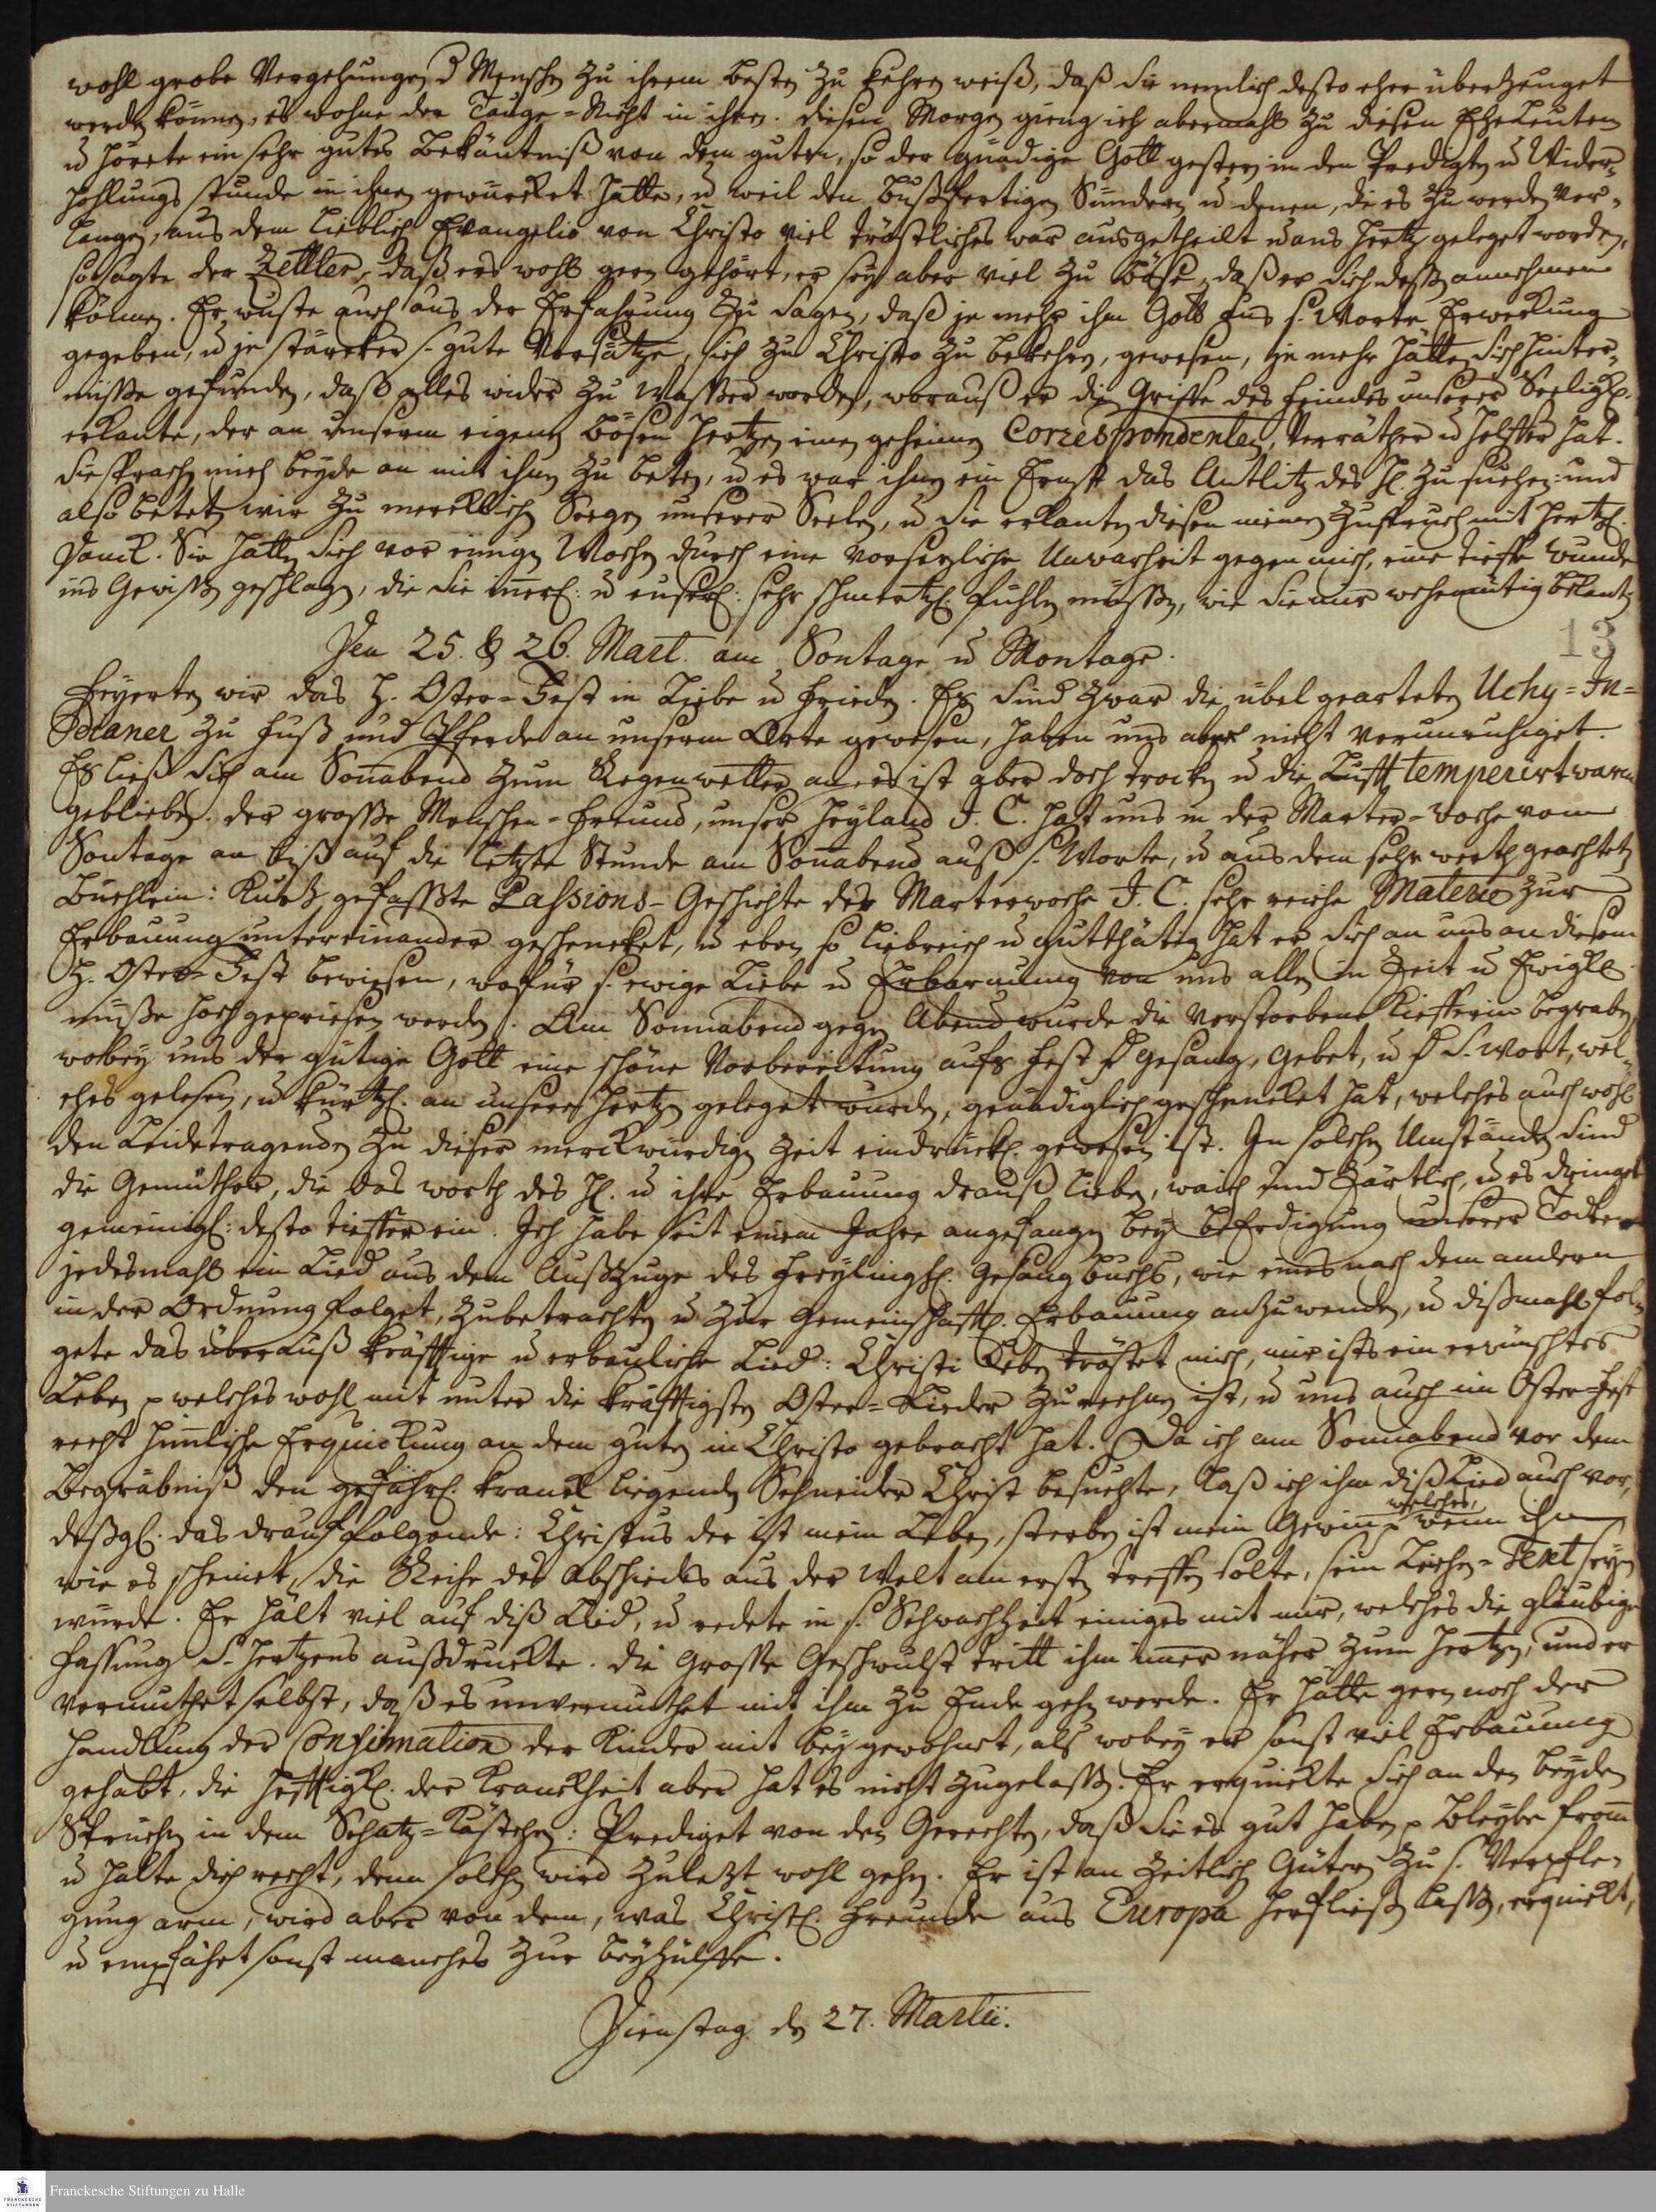 wohl grobe Vergehungen d Menschen zu ihrem Besten zu kehren weiß, daß sie nemlich desto eher überzeuget
werden können, es wohne der Tauge-Nicht in ihnen. Diesen Morgen gieng ich abermahls zu diesen Eheleuten
u hörete ein sehr gutes Bekäntniß von dem guten, so der gnädige Gott gestern in den Predigten u Wider-
hohlungs stunde in ihnen gewürcket hatte, u weil den bußfertigen Sündern u denen, die es zu werden ver-
langen, aus dem lieblichen Evangelio von Christo viel tröstliches war ausgetheilt u ans Hertz geleget worden,
so sagte der Zettler, daß ers wohl gern gehört, er sey aber viel zu böse, daß er sich deßen annehmen
könne. Er wuste auch aus der Erfahrung zu sagen, daß je mehr ihm Gott aus s. Worte Erweckung
gegeben, u je stärcker s. gute Vorsätze, sich zu Christo zu bekehren, gewesen, je mehr hätten sich Hinter-
niße gefunden, daß alles wider zu Waßer worden, worauß er die Griffe des Feindes unserer Seeligk.
erkante, der an unserm eigenen bösen Hertzen einen geheimen Correspondenten, Verräther u Helffer hat.
Sie sprachen mich beyde an mit ihnen zu beten, u es war ihnen ein Ernst das Antlitz des H. zu suchen: und
also beteten wir zu mercklichen Seegen unserer Seelen, u sie erkanten diesen meinen Zuspruch mit Hertzl.
Danck. Sie hatten sich vor einigen Wochen durch eine vorsezliche Unwarheit gegen mich, eine tieffe wunde
ins Gewißen geschlagen, die sie innerl: u euserl: sehr schmertzl. fühlen müßen, wie sie mir wehemütig bekanten
13
Den 25. & 26. Mart. am Sontage u Montage.
Feyerten wir das H. Oster-Fest in Liebe u Frieden. Es sind zwar die übel gearteten Uchy-In-
dianer zu Fuß und Pferde an unserm Orte gewesen, haben uns aber nicht verunruhiget.
Es ließ sich am Sonabend zum Regenwetter an, es ist aber doch trocken u die Lufft temperirt warm
geblieben. Der große Menschen-Freund, unser Heyland J. C. hat uns in der Marter-woche vom
Sontage an biß auf die letzte Stunde am Sonabend auß s. Worte, u aus dem sehr werth geachteten
Büchlein: Kurtz gefaßte Passions-Geschichte der Marterwoche J. C. sehr reiche Materie zur
Erbauung untereinander geschencket, u eben so liebreich u gutthätig hat er sich an uns an diesem
H. Oster-Fest bewiesen, wofür s. ewige Liebe u Erbarmung von uns allen in Zeit u Ewigk.
müße hoch gepriesen werden. Am Sonnabend gegen Abend wurde die verstorbene Kiefferin begraben,
wobey uns der gütige Gott eine schöne Vorbereitung aufs Fest d Gesang, Gebet, u d s. Wort, wel-
ches gelesen, u kürtzl. an unsere Hertzen geleget wurden, gnädiglich geschencket hat, welches auch wohl
den Leidetragenden zu dieser merckwürdigen Zeit eindrückl. gewesen ist. In solchen Umständen sind
die Gemüther, die das worth des H. u ihre Erbauung drauß lieben, waich und zärtlich, u es dringet
gemeinigl: desto tieffer ein. Ich habe seit einem Jahre angefangen bey Beerdigung unserer Todten
jedesmahl ein Lied aus dem Außzuge des Freylinghs. Gesangbuchs, wie eines nach dem andern
in der Ordnung folget, zubetrachten u zur Gemeinschafftl. Erbauung anzuwenden, u dißmahl fol-
gete das überauß kräfftige u erbauliche Lied: Christi Leben tröstet mich, mir ists ein erwünschtes
Leben p welches wohl mit unter die kräfftigsten Oster-Lieder zu rechnen ist, u uns auch im Oster-Fest
recht himlische Erquickung an dem guten in Christo gebracht hat. Da ich am Sonnabend vor dem
Begräbniß den gefährl. kranck liegenden Schneider Christ besuchte, laß ich ihm diß Lied auch vor,
deßgl. das drauf folgende: Christus der ist mein Leben, sterben ist mein Gewinn p welches, wenn ihn
wie es scheinet, die Reihe des Abschieds aus der Welt am ersten treffen solte, sein Leichen-Text seyn
würde. Er hält viel auf diß Lied, u redete in s. Schwachheit einiges mit mir, welches die gläubige
Faßung s. Hertzens außdruckte. Die große Geschwulst tritt ihm imer näher zum Hertzen, und er
vermuthet selbst, daß es unvermuthet mit ihm zu Ende gehen werde. Er hätte gern noch der
Handlung der Confirmation der Kinder mit bey gewohnet, als wobey er sonst viel Erbauung
gehabt, die Hefftigk. der Kranckheit aber hat es nicht zugelaßen. Er erquickte sich an den beyden
Sprüchen in dem Schatz-Kästchen: Prediget von den Gerechten, daß sie es gut haben p Bleybe from
u halte dich recht, denn solchen wird zuletzt wohl gehen. Er ist an Zeitlichen Gütern zu s. Verpfle-
gung arm, wird aber von dem, was Christl. Freunde aus Europa herfließen laßen, erquickt,
u empfähet sonst manches zur Beyhülffe.
Dienstag den 27. Martii.
Franckesche Stiftungen zu Halle